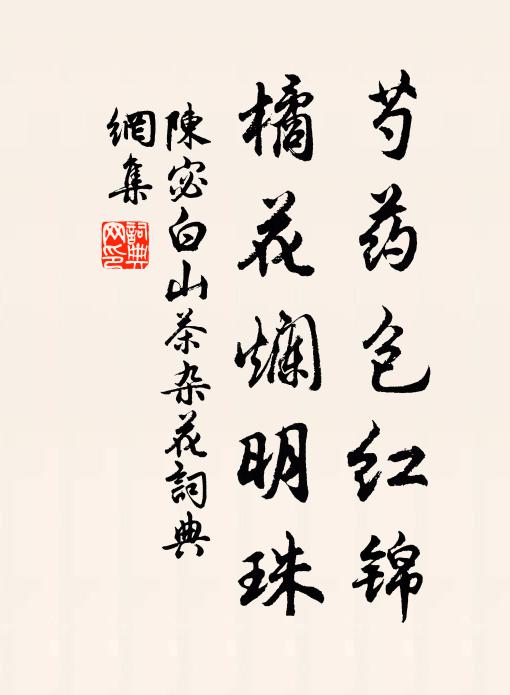 芍药包红锦
橘花爛明珠
陳宓白山茶杂花詞典
網集
詞典
网印